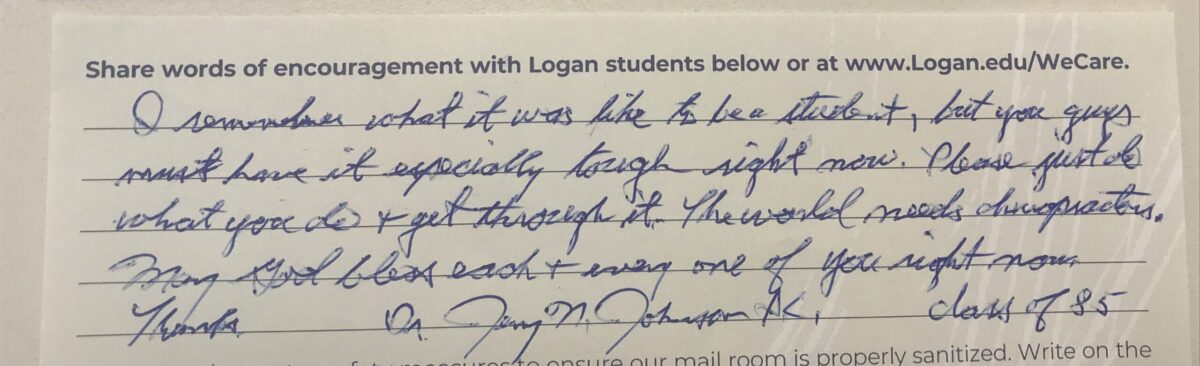 Share words of encouragement with Logan students below or at www.Logan.edu/WeCare.
I remember what it was like to be a student, but you guys
must have it especially tough right now. Please just do
what you do + get through it. The world needs chiropractors.
May God bless each + every one of you right now.
Thanks Dr. Jerry N. Johnson DC, class of 85
to ensure our mail room is properly sanitized. Write on the